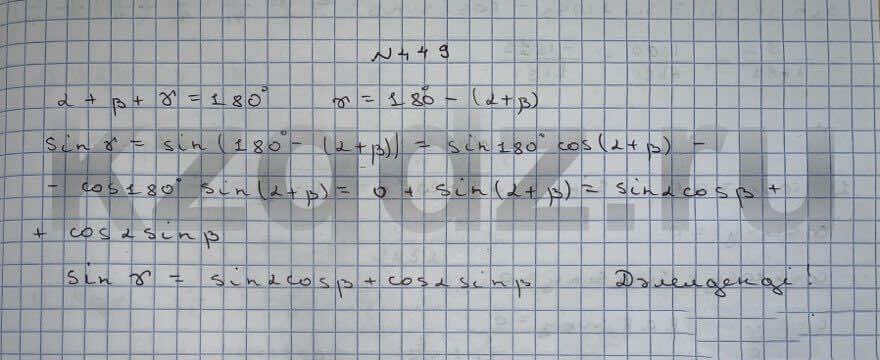 N 449
α + β + γ = 180° γ = 180° - (α+β)
sin γ = sin (180° - (α+β)) = sin 180° cos(α+β) -
- cos 180° sin(α+β) = 0 + sin(α+β) = sin α cos β +
+ cos α sin β
sin γ = sin α cos β + cos α sin β Дәлелденді!
kzgdz.ru